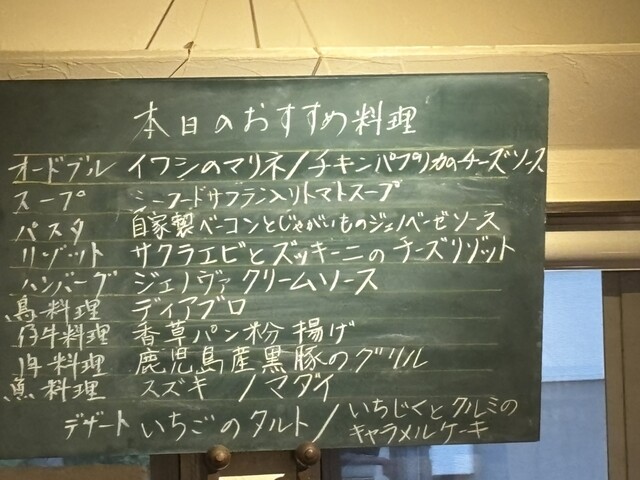 本日のおすすめ料理
オードブル イワシのマリネ/チキンパプリカのチーズソース
スープ シーフードサフラン入りトマトスープ
パスタ 自家製ベーコンとじゃがいものジェノベーゼソース
リゾット サクラエビとズッキーニのチーズリゾット
ハンバーグ ジェノヴァクリームソース
鳥料理 ディアブロ
仔牛料理 香草パン粉揚げ
料理 鹿児島産黒豚のグリル
魚料理 スズキ/マダイ
デザート いちごのタルト/いちじくとクルミの
キャラメルケーキ